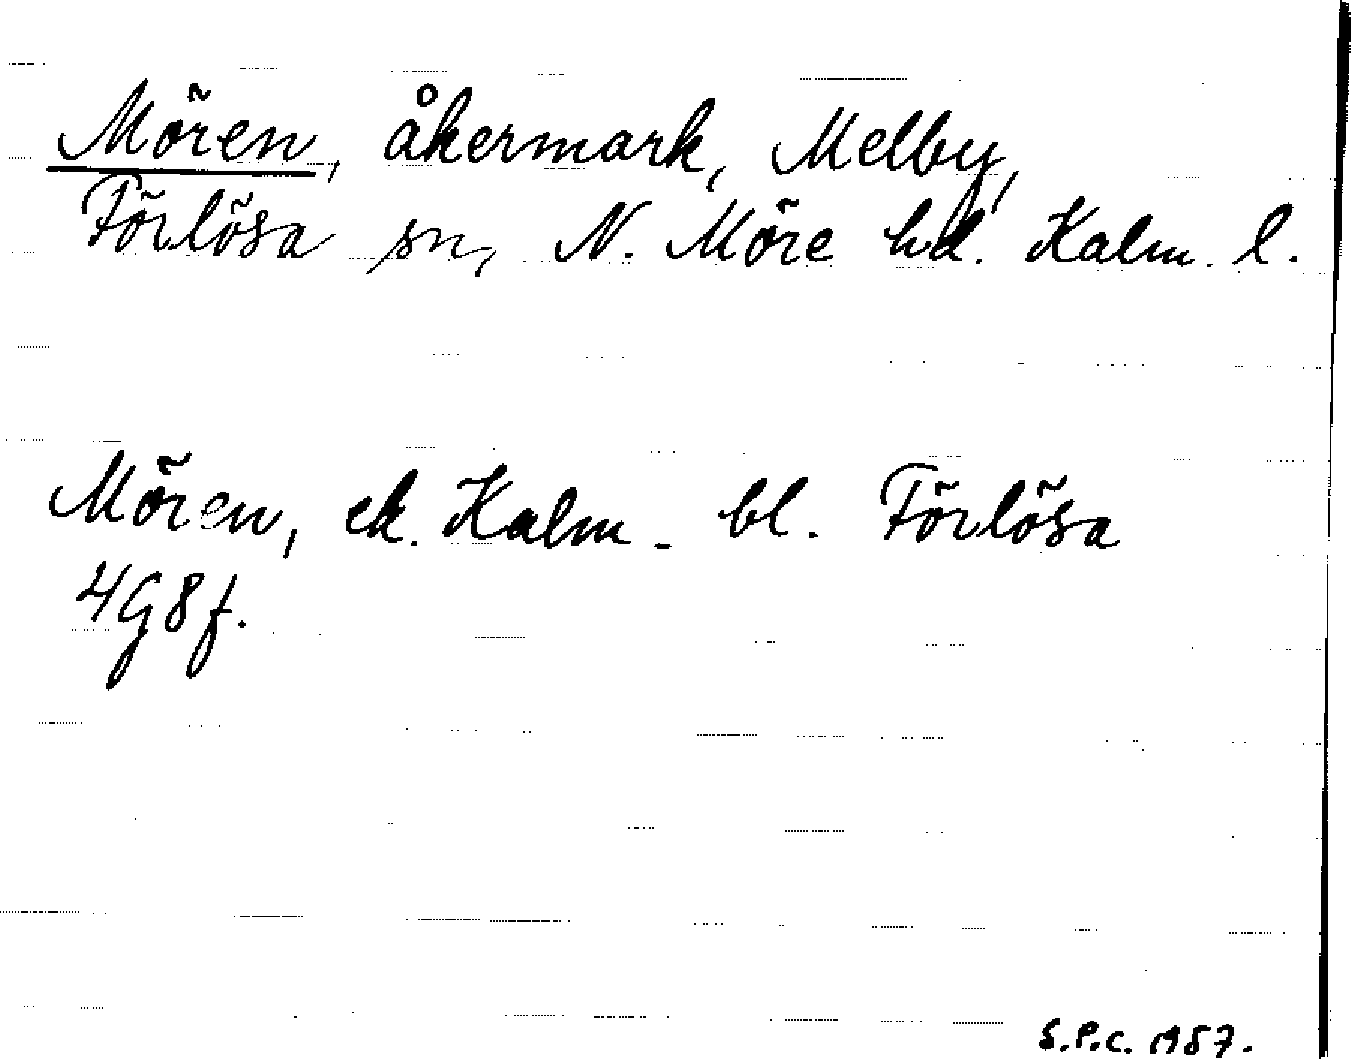 Mören, åkermark, Melby,
Förlösa sn, N. Möre hd. Kalm. l.
Mören, ek. Kalm. bl. Förlösa
4G8f.
S.P.C. 1957.